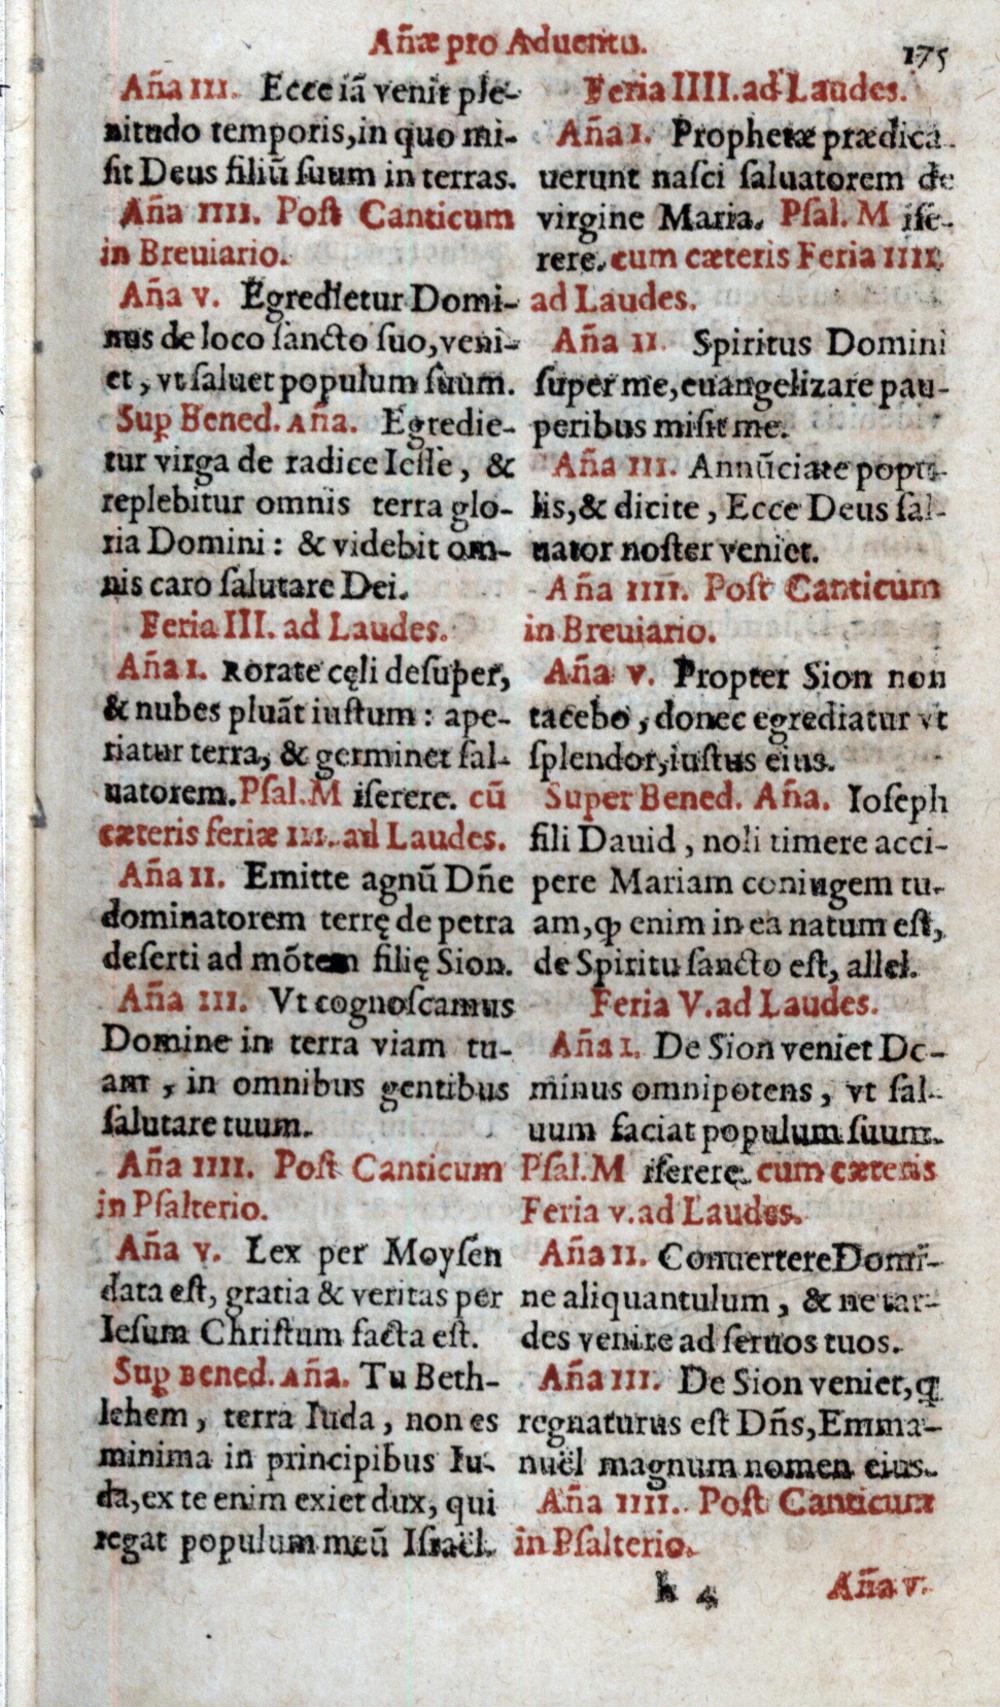 Añæ pro Aduentu.
175
Aña III. Ecce iã venit ple-
nitudo temporis, in quo mi-
sit Deus filiũ suum in terras.
Aña IIII. Post Canticum
in Breuiario.
Aña V. Egredietur Domi-
nus de loco sancto suo, veni-
et, vt saluet populum suum.
Sup Bened. Aña. Egredie-
tur virga de radice Iesse, &
replebitur omnis terra glo-
ria Domini: & videbit om-
nis caro salutare Dei.
Feria III. ad Laudes.
Aña I. Rorate cęli desuper,
& nubes pluãt iustum: ape-
riatur terra, & germinet sal-
uatorem. Psal. Miserere. cũ
cæteris feriæ III. ad Laudes.
Aña II. Emitte agnũ Dñe
dominatorem terrę de petra
deserti ad mõtem filię Sion.
Aña III. Vt cognoscamus
Domine in terra viam tu-
am, in omnibus gentibus
salutare tuum.
Aña IIII. Post Canticum
in Psalterio.
Aña V. Lex per Moysen
data est, gratia & veritas per
Iesum Christum facta est.
Sup Bened. Aña. Tu Beth-
lehem, terra Iuda, non es
minima in principibus Iu-
da, ex te enim exiet dux, qui
regat populum meũ Israël.
Feria IIII. ad Laudes.
Aña I. Prophetæ prædica-
uerunt nasci saluatorem de
virgine Maria. Psal. Mise-
rere. cum cæteris Feria IIII.
ad Laudes.
Aña II. Spiritus Domini
super me, euangelizare pau-
peribus misit me.
Aña III. Annũciate popu-
lis, & dicite, Ecce Deus sal-
uator noster veniet.
Aña IIII. Post Canticum
in Breuiario.
Aña V. Propter Sion non
tacebo, donec egrediatur vt
splendor, iustus eius.
Super Bened. Aña. Ioseph
fili Dauid, noli timere acci-
pere Mariam coniugem tu-
am, ꝙ enim in ea natum est,
de Spiritu sancto est, allel.
Feria V. ad Laudes.
Aña I. De Sion veniet Do-
minus omnipotens, vt sal-
uum faciat populum suum.
Psal. Miserere. cum cæteris
Feria V. ad Laudes.
Aña II. Conuertere Domi-
ne aliquantulum, & ne tar-
des venire ad seruos tuos.
Aña III. De Sion veniet, q̃
regnaturus est Dñs, Emma-
nuël magnum nomen eius.
Aña IIII. Post Canticum
in Psalterio.
h 4
Aña V.